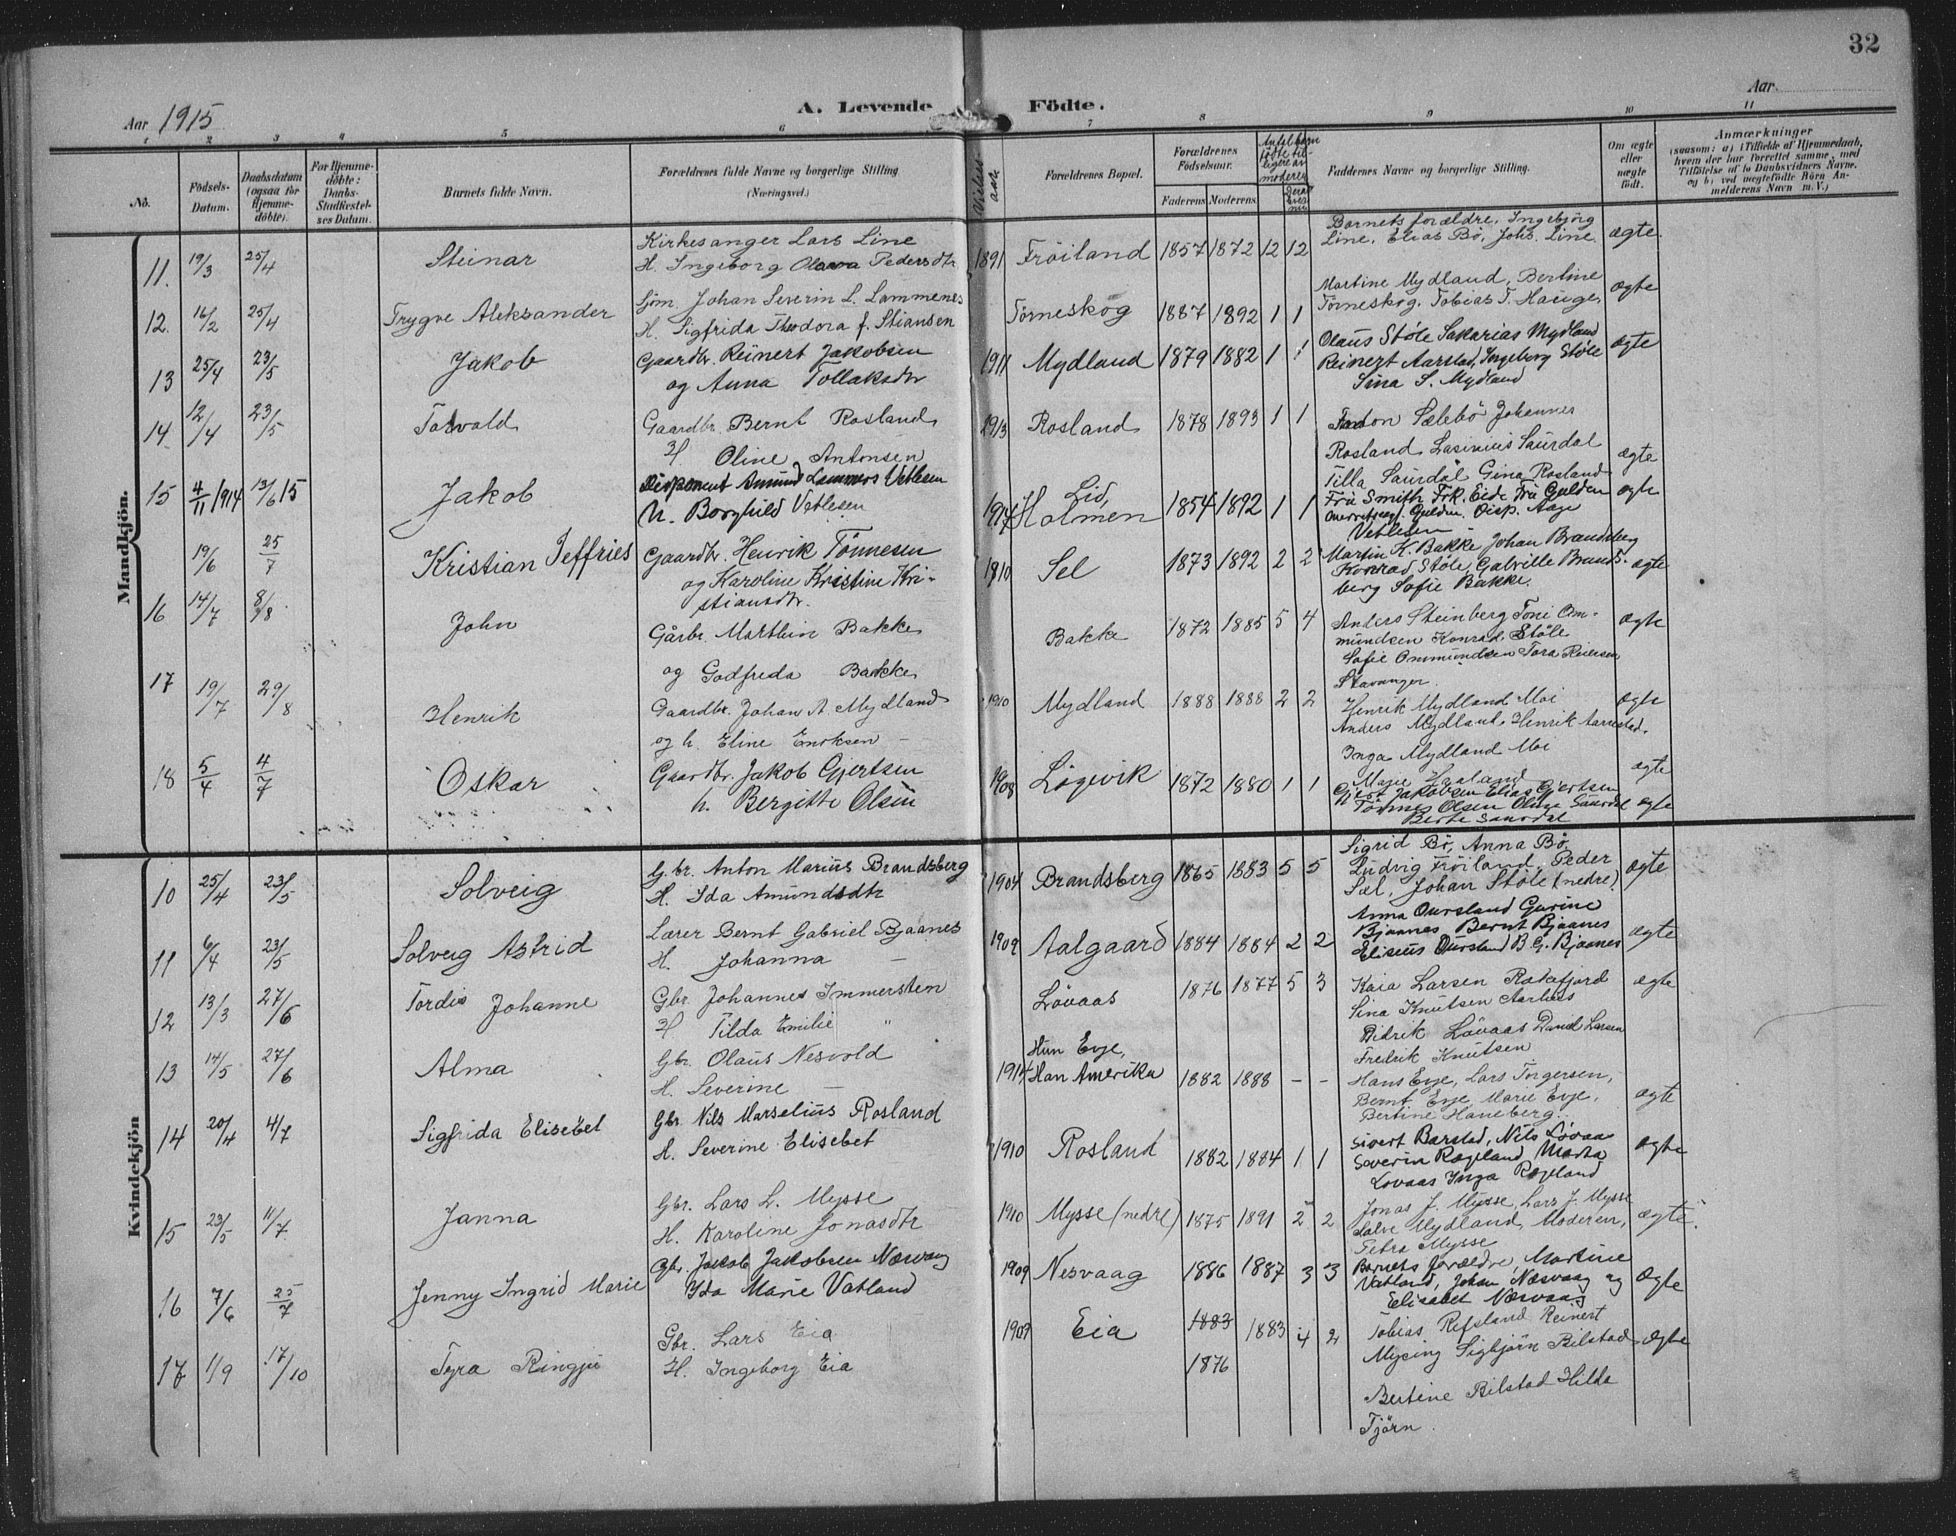 32
Aar 1915
A. Levende Födte.
Aar
1 2 3 4 5 6 7 8 9 10 11
No.
Födsels-Datum.
Daabsdatum (ogsaa for Hjemmedöbte).
For Hjemmedöbte: Daabs-Stadfæstelses Datum.
Barnets fulde Navn.
Forældrenes fulde Navne og borgerlige Stilling (Næringsvei.)
Vielses aar
Forældrenes Bopæl.
Forældrenes Födselsaar.
Faderens Moderens
Antal barn födte tidligere av moderen
Fadderneß Navne og borgerlige Stilling.
Om ægte eller uægte födt.
Anmærkninger
(saasom: a) i Tilfælde af Hjemmedaab, hvem der har forrettet samme, med Tilföielse af to Daabsvidners Navne. og b) ved uægtefödte Börn Anmelderens Navn m. V.)
Mandkjön.
11. 19/3 25/4 Steinar
Kirkesanger Lars Line
H. Ingeborg Olava Pedersdtr
1891 Fröiland 1857 1872 12 12
Barnets forældre, Ingebjørg
Line, Elias Bø, Johs. Line
ægte.
12. 16/2 25/4 Trygve Aleksander
Sjöm. Johan Severin L. Lammenes
H. Sigfrida Theodora f. Stiansen
Törneskog 1887 1892 1 1
Martine Mydland, Bertine
Törneskog, Tobias T. Hauge,
ægte
13 25/4 23/5 Jakob
Gaardbr. Reinert Jakobsen
og Anna Tollaksdtr
1911 Mydland 1879 1882 1 1
Olaus Støle Sakarias Mydland
Reinert Aarstad, Ingeborg Støle
Sina S. Mydland
ægte
14. 12/4 23/5 Torvald
Gaardbr. Bernt Rosland
H Oline Antonsen
1913 Rosland 1878 1893 1 1
Anton Sælebö Johannes
Rosland Lasinius Saurdal
Tilla Saurdal Gina Rosland
ægte
15 4/11 1914 13/6 15 Jakob
Disponent Amund Lammers Vetlesen
h. Borghild Vetlesen
1914 Lid, Holmen 1854 1892 1 1
Frü Smith Frk. Eide Frü Gulden
Gulden. Disp. Aage
Vetlesen
ægte
19/6 25/7 Kristian Jeffries
Gaardbr. Henrik Tönnesen
og Karoline Kristine Kri-
stiansdtr.
1910 Sel 1873 1892 2 2
Martin K. Bakke Johan Brandsberg
Konrad Støle, Gabrille Brands-
berg Sofie Bakke.
ægte
16 14/7 8/8 John
Gårbr. Marthin Bakke
og Godfreda Bakke
Bakke 1872 1885 5 4
Anders Steinberg Toni Om-
mundsen Konrad Støle
Sofie Ommundsen Tora Reiersen
Stavanger.
ægte
17 19/7 29/8 Henrik
Gaardbr. Johan A. Mydland
og h. Eline Eriksen –
1910 Mydland 1888 1888 2 2
Henrik Mydland Moi
Anders Mydland, Henrik Aarrestad,
Inga Mydland Moi
Marie Haaland
ægte
ægte
18 5/4 4/7 Oskar
Gaardbr. Jakob Gjertsen
h. Bergitte Olsen
1908 Løgevik 1872 1880 1 1
Gjert Jakobsen Elias Gjertsen
Tönnes Olsen Oline Saurdal
Berte Saurdal
ægte
Kvindekjön
10 25/4 23/5 Solveig
Gbr. Anton Marius Brandsberg
H. Ida Amundsdtr
1904 Brandsberg 1865 1883 5 5
Sigrid Bø, Anna Bø,
Ludvig Fröiland, Peder
Sæl, Johan Støle (nedre)
ægte
11 6/4 23/5 Solveig Astrid
Lærer Bernt Gabriel Bjaanes
H. Johanna –
1909 Aalgaard 1884 1884 2 2
Anna Oursland Gurine
Bjaanes Bernt Bjaanes
Eliseus Oursland B. G. Bjaanes
ægte
12 13/3 27/6 Tordis Johanne
Gbr. Johannes Immersten
H Tilda Emilie "
Lövaas 1876 1877 5 3
Kaia Larsen Rekefjord
Sina Knutsen Aarhus
Didrik Lövaas Daniel Larsen
Fredrik Knutsen
ægte
13 14/5 27/6 Alma
Gbr. Olaus Nesvold
H. Severine –
1914 Hun Evje,
Han Amerika 1882 1888 – –
Hans Evje, Lars Torgersen,
Bernt Evje, Marie Evje,
Bertine Haneberg.
ægte
14 20/4 4/7 Sigfrida Elisebet
Gbr. Nils Marselius Rosland
H. Severine Elisebet
1910 Rosland 1882 1884 1 1
Sivert Barstad, Nils Lövaas
Severin Rægeland, Marta
Lovaas Inga Rægeland
ægte
15 23/5 11/7 Janna
Gbr. Lars L. Mysse
H. Karoline Jonasdtr
1910 Mysse (nedre) 1875 1891 2 2
Jonas J. Mysse, Lars J. Mysse
Salve Mydland, Moderen,
Petra Mysse
ægte.
16 7/6 25/7 Jenny Ingrid Marie
Gbr. Jakob Jakobsen Næsvaag
Ida Marie Vatland
1909 Nesvaag 1886 1887 3 3
Barnets forældre, Martine
Vatland, Johan Næsvaag og
Elisabet Næsvaag
Ægte
17 1/9 17/10 Tyra Ringju
Gbr. Lars Eia
H. Ingeborg Eia
1909 Eia 1883 1883 4 2
1876
Tobias Refsland Reinert
Mysing Sigbjörn Bilstad
Bertine Bilstad Hilda
Tjörn.
Ægte